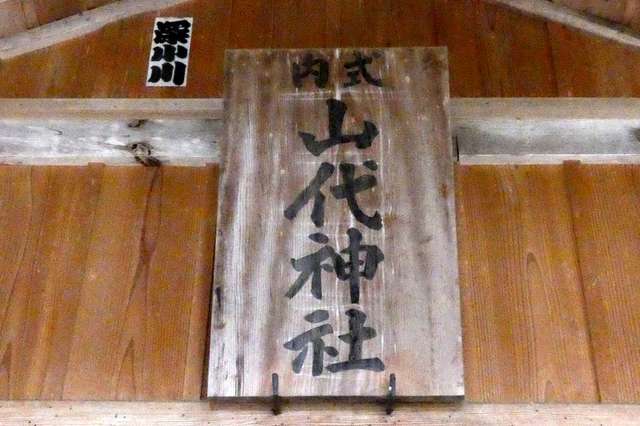 深小川
式内
山代神社